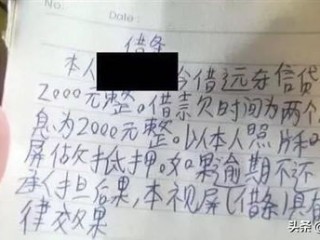 No:
Date:
借条
本人 今借远东信贷
2000元整。借款欠时间为两个
息为2000元整。以本人照片和
屏做抵押。如果逾期不还
承担后果,本视屏(借条)具有
律效果
头条